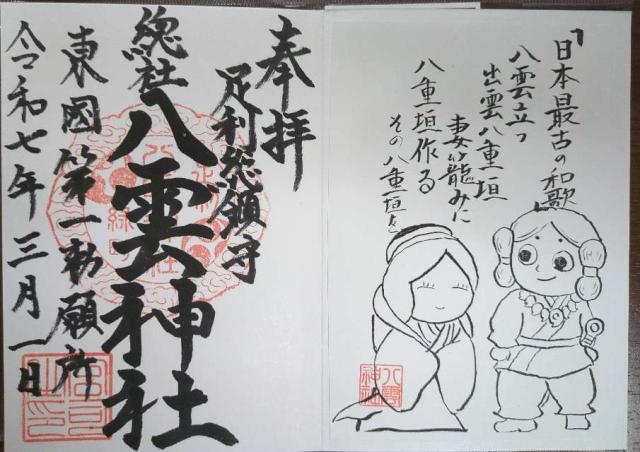 「日本最古の和歌」
八雲立つ
出雲八重垣
妻籠みに
八重垣作る
その八重垣を
八雲
神社
奉拝
足利総領守
総社
八雲神社
東國第一勅願所
令和七年三月一日